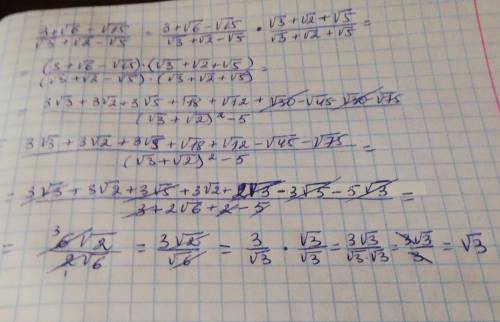 (3+√6−√15)/(√3+√2−√5) = (3+√6−√15)/(√3+√2−√5) · (√3+√2+√5)/(√3+√2+√5) =
= ((3+√6−√15)·(√3+√2+√5))/((√3+√2−√5)·(√3+√2+√5)) =
= (3√3+3√2+3√5+√18+√12+√30−√45−√30−√75)/((√3+√2)²−5)
(3√3+3√2+3√5+√18+√12−√45−√75)/((√3+√2)²−5) =
= (3√3+3√2+3√5+3√2+2√3−3√5−5√3)/(3+2√6+2−5) =
= (6√2)/(2√6) = (3√2)/(√6) = 3/√3 · √3/√3 = (3√3)/(√3·√3) = (3√3)/3 = √3